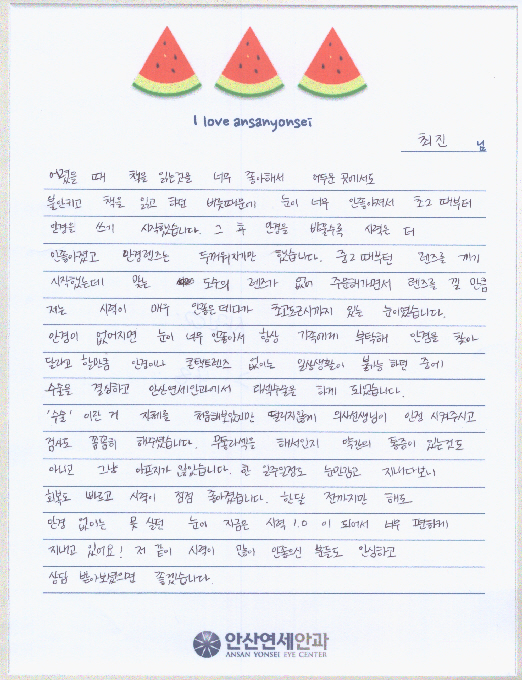 I love ansanyonsei
최진 님
어렸을 때 책을 읽는것을 너무 좋아해서 어두운 곳에서도
불안키고 책을 읽고 하던 버릇때문에 눈이 너무 안좋아져서 초2 때부터
안경을 쓰기 시작했습니다. 그 후 안경을 바꿀수록 시력은 더
안좋아졌고 안경렌즈는 두꺼워지기만 했습니다. 중2 때부턴 렌즈를 끼기
시작했는데 맞는 도수의 렌즈가 없어 주문해가면서 렌즈를 낄 만큼
저는 시력이 매우 안좋은데다가 초고도근시까지 있는 눈이였습니다.
안경이 없어지면 눈이 너무 안좋아서 항상 가족에게 부탁해 안경을 찾아
달라고 할만큼 안경이나 콘택트렌즈 없이는 일상생활이 불가능 하던 중에
수술을 결심하고 안산연세안과에서 라섹수술을 하게 되었습니다.
'수술' 이란 거 자체를 처음해보았지만 떨리지않게 의사선생님이 안정 시켜주시고
검사도 꼼꼼히 해주셨습니다. 무통라섹을 해서인지 약간의 통증이 있는것도
아니고 그냥 아프지가 않았습니다. 한 일주일정도 눈만감고 지내다보니
회복도 빠르고 시력이 점점 좋아졌습니다. 한달 전까지만 해도
안경 없이는 못 살던 눈이 지금은 시력 1.0 이 되어서 너무 편하게
지내고 있어요! 저 같이 시력이 많이 안좋으신 분들도 안심하고
상담 받아보셨으면 좋겠습니다.
안산연세안과
ANSAN YONSEI EYE CENTER